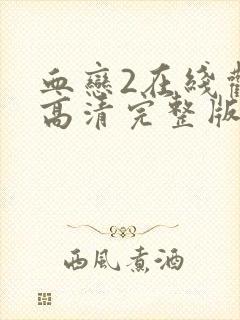 血戀2在綫
高清完整版
西風煮酒